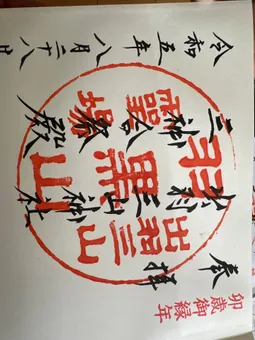 卯歳御縁年
奉拝
出羽三山
羽黒山
霊場
出羽三山神社
三神合祭殿
令和五年八月二十八日